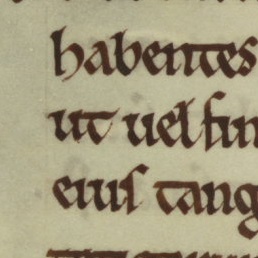 habentes
ut uel fin
eius tang